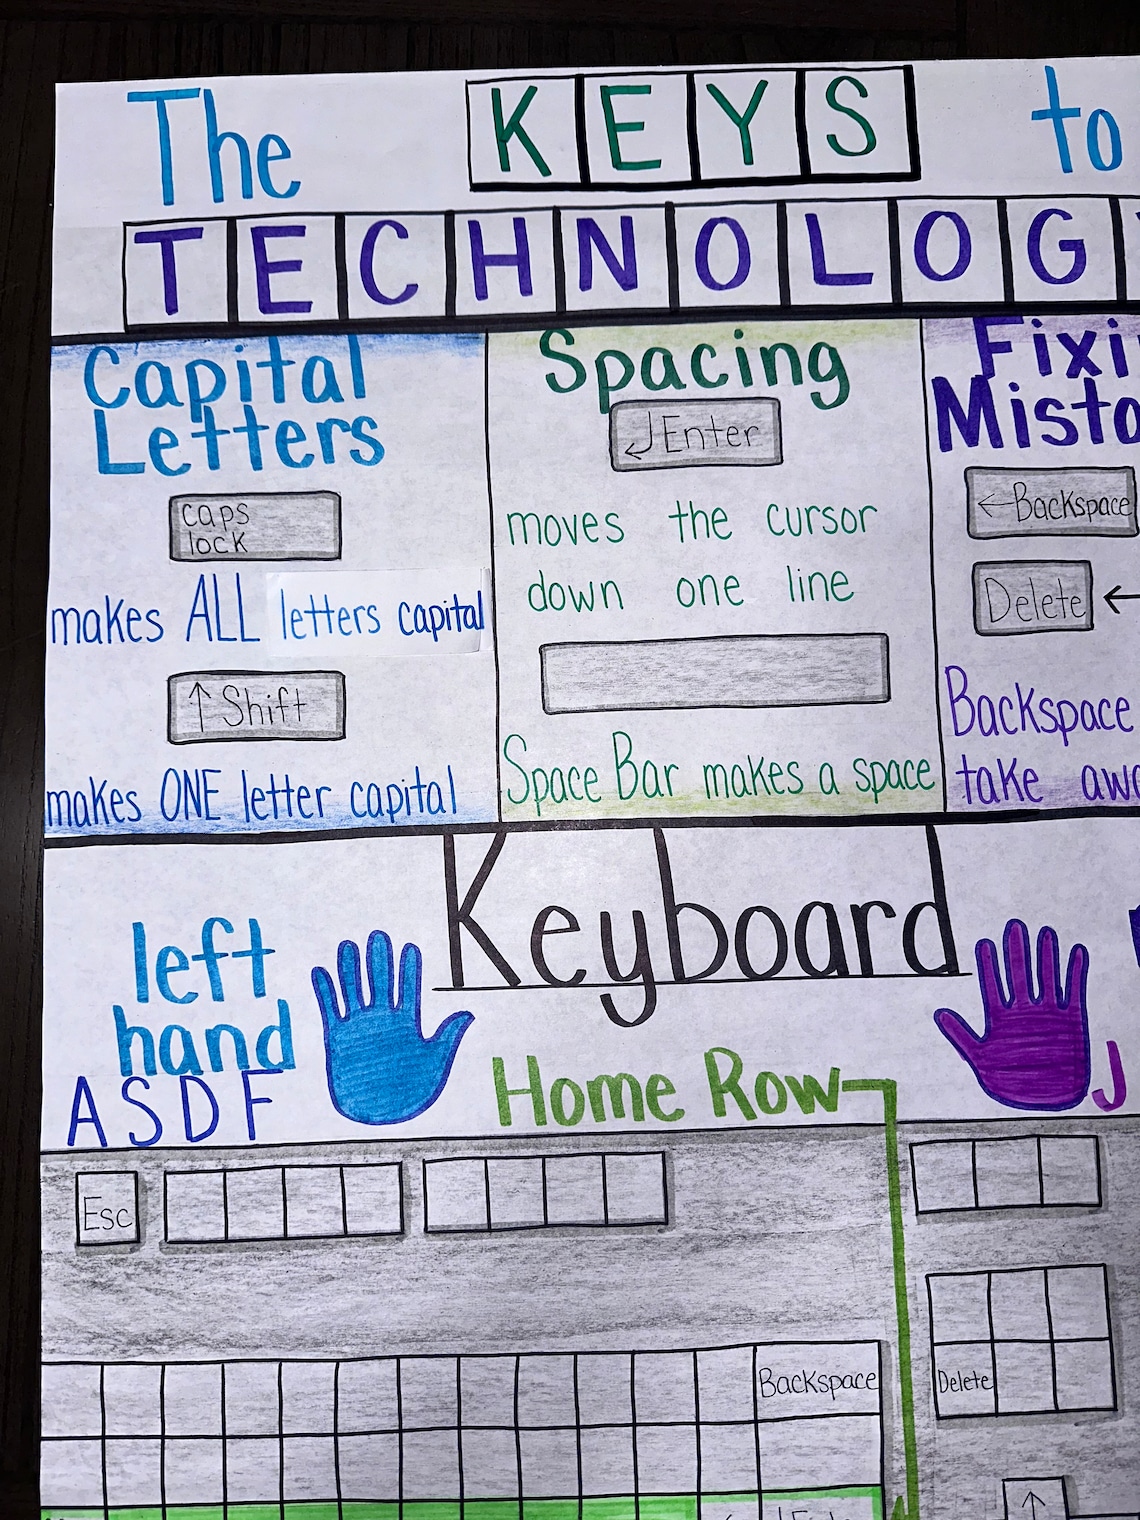 The KEYS to
TECHNOLOG
Capital
Letters
caps
lock
makes ALL letters capital
↑ Shift
makes ONE letter capital
Spacing
↲ Enter
moves the cursor
down one line
Space Bar makes a space
Fixi
Mista
← Backspace
Delete ←
Backspace
take awa
Keyboard
left
hand
A S D F
Home Row
J
Esc
Backspace
Delete
↑
Enter